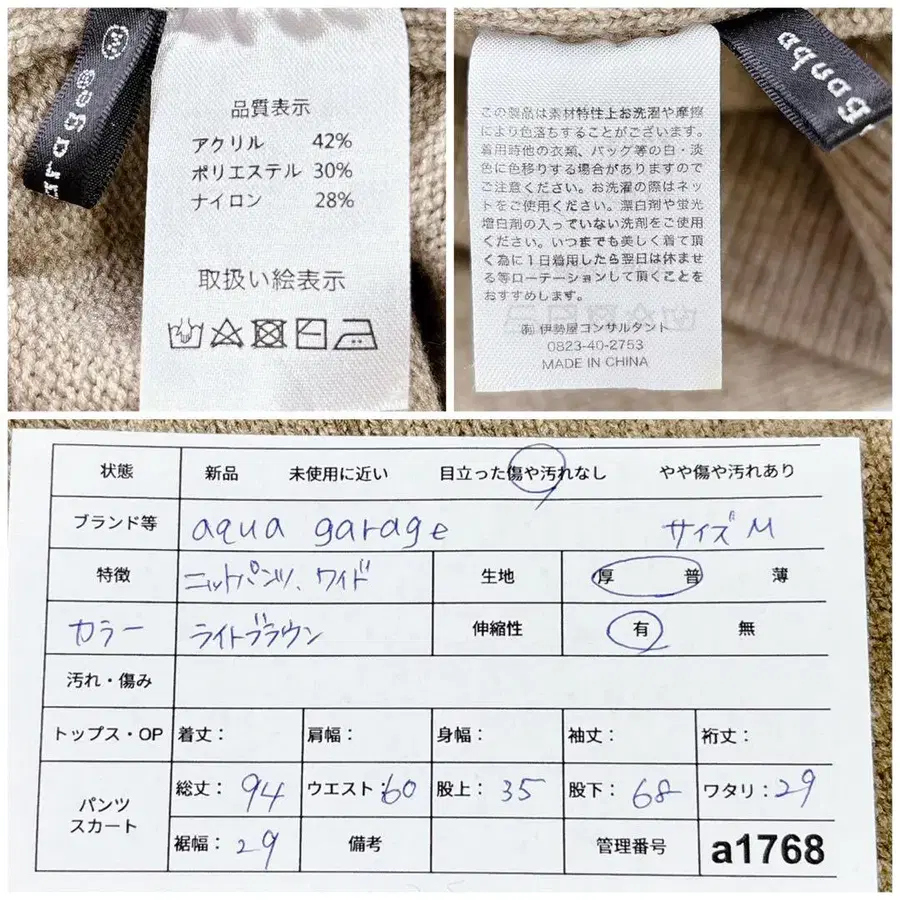 品質表示
アクリル 42%
ポリエステル 30%
ナイロン 28%
取扱い絵表示
この製品は素材特性上お洗濯や摩擦
により色落ちすることがございます。
着用時他の衣類、バッグ等の白・淡
色に色移りする場合がありますので
ご注意ください。お洗濯の際はネッ
トをご使用ください。漂白剤や蛍光
増白剤の入っていない洗剤をご使用
ください。いつまでも美しく着て頂
く為に1日着用したら翌日は休ませ
る等ローテーションして頂くことを
おすすめします。
㈲ 伊勢屋コンサルタント
0823-40-2753
MADE IN CHINA
状態 新品 未使用に近い 目立った傷や汚れなし やや傷や汚れあり
ブランド等 aqua garage サイズ M
特徴 ニットパンツ、ワイド 生地 厚 普 薄
カラー ライトブラウン 伸縮性 有 無
汚れ・傷み
トップス・OP 着丈: 肩幅: 身幅: 袖丈: 裄丈:
パンツ スカート 総丈: 94 ウエスト:60 股上: 35 股下: 68 ワタリ:29
裾幅: 29 備考 管理番号 a1768